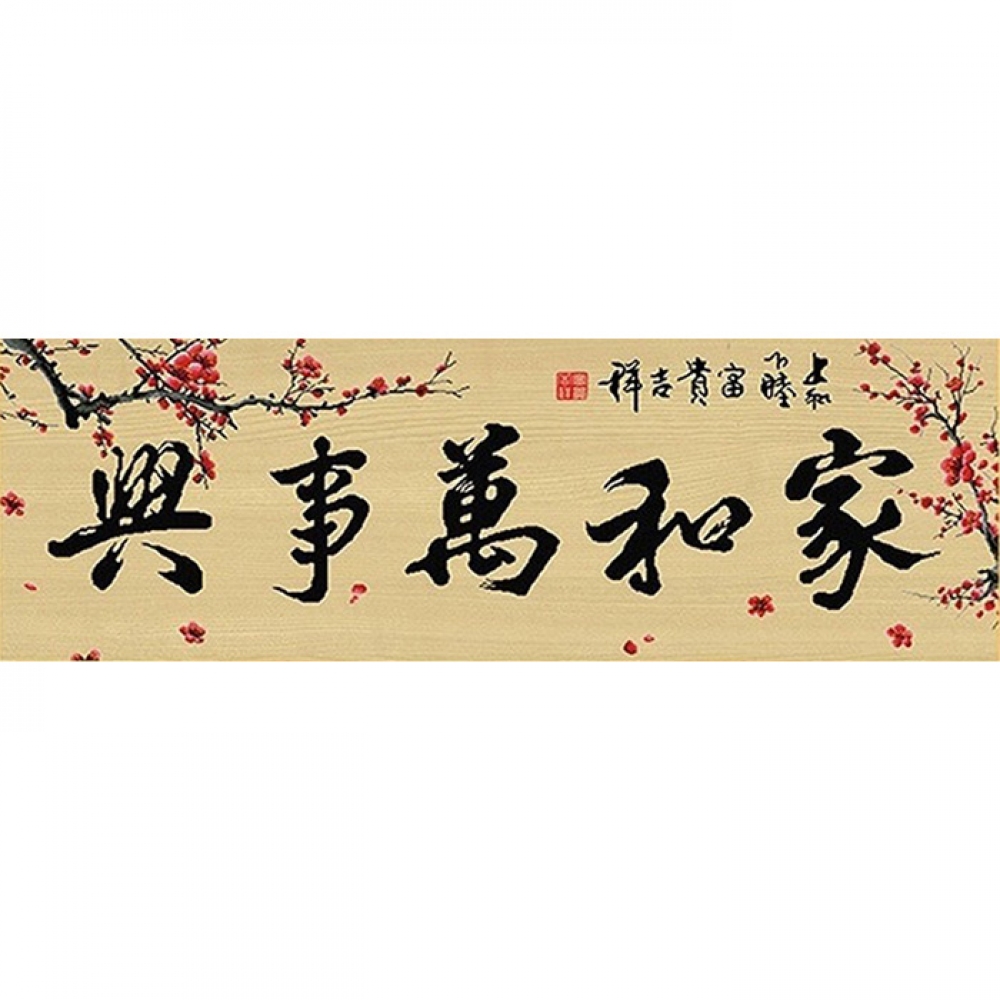 家和萬事興
上和下睦富貴吉祥